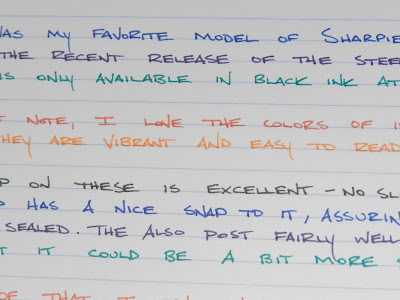 AS MY FAVORITE MODEL OF SHARPIE
THE RECENT RELEASE OF THE STEE
IS ONLY AVAILABLE IN BLACK INK AT
T NOTE, I LOVE THE COLORS OF I
THEY ARE VIBRANT AND EASY TO READ
P ON THESE IS EXCELLENT – NO SL
HAS A NICE SNAP TO IT, ASSURIN
SEALED. THE ALSO POST FAIRLY WELL
T IT COULD BE A BIT MORE
OF THAT